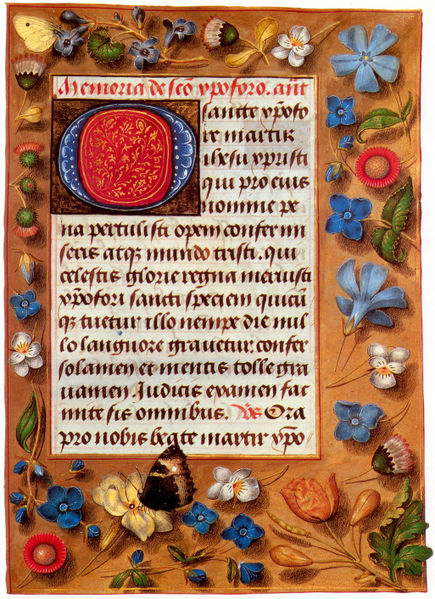 Memoria de sco xpoforo. ant
O sancte xpofo
re martir
ihesu xpristi
qui pro eius
nomine pe
na pertulisti opem confer mi
seris atqꝫ mundo tristi. qui
celestis glorie regna meruisti
xpofori sancti speciem quicū
qꝫ tuetur illo nempe die nul
lo languore grauetur; confer
solamen et mentis tolle gra
uamen Iudicis examen fac
mite sis omnibus. Vs Ora
pro nobis beate martir xpo